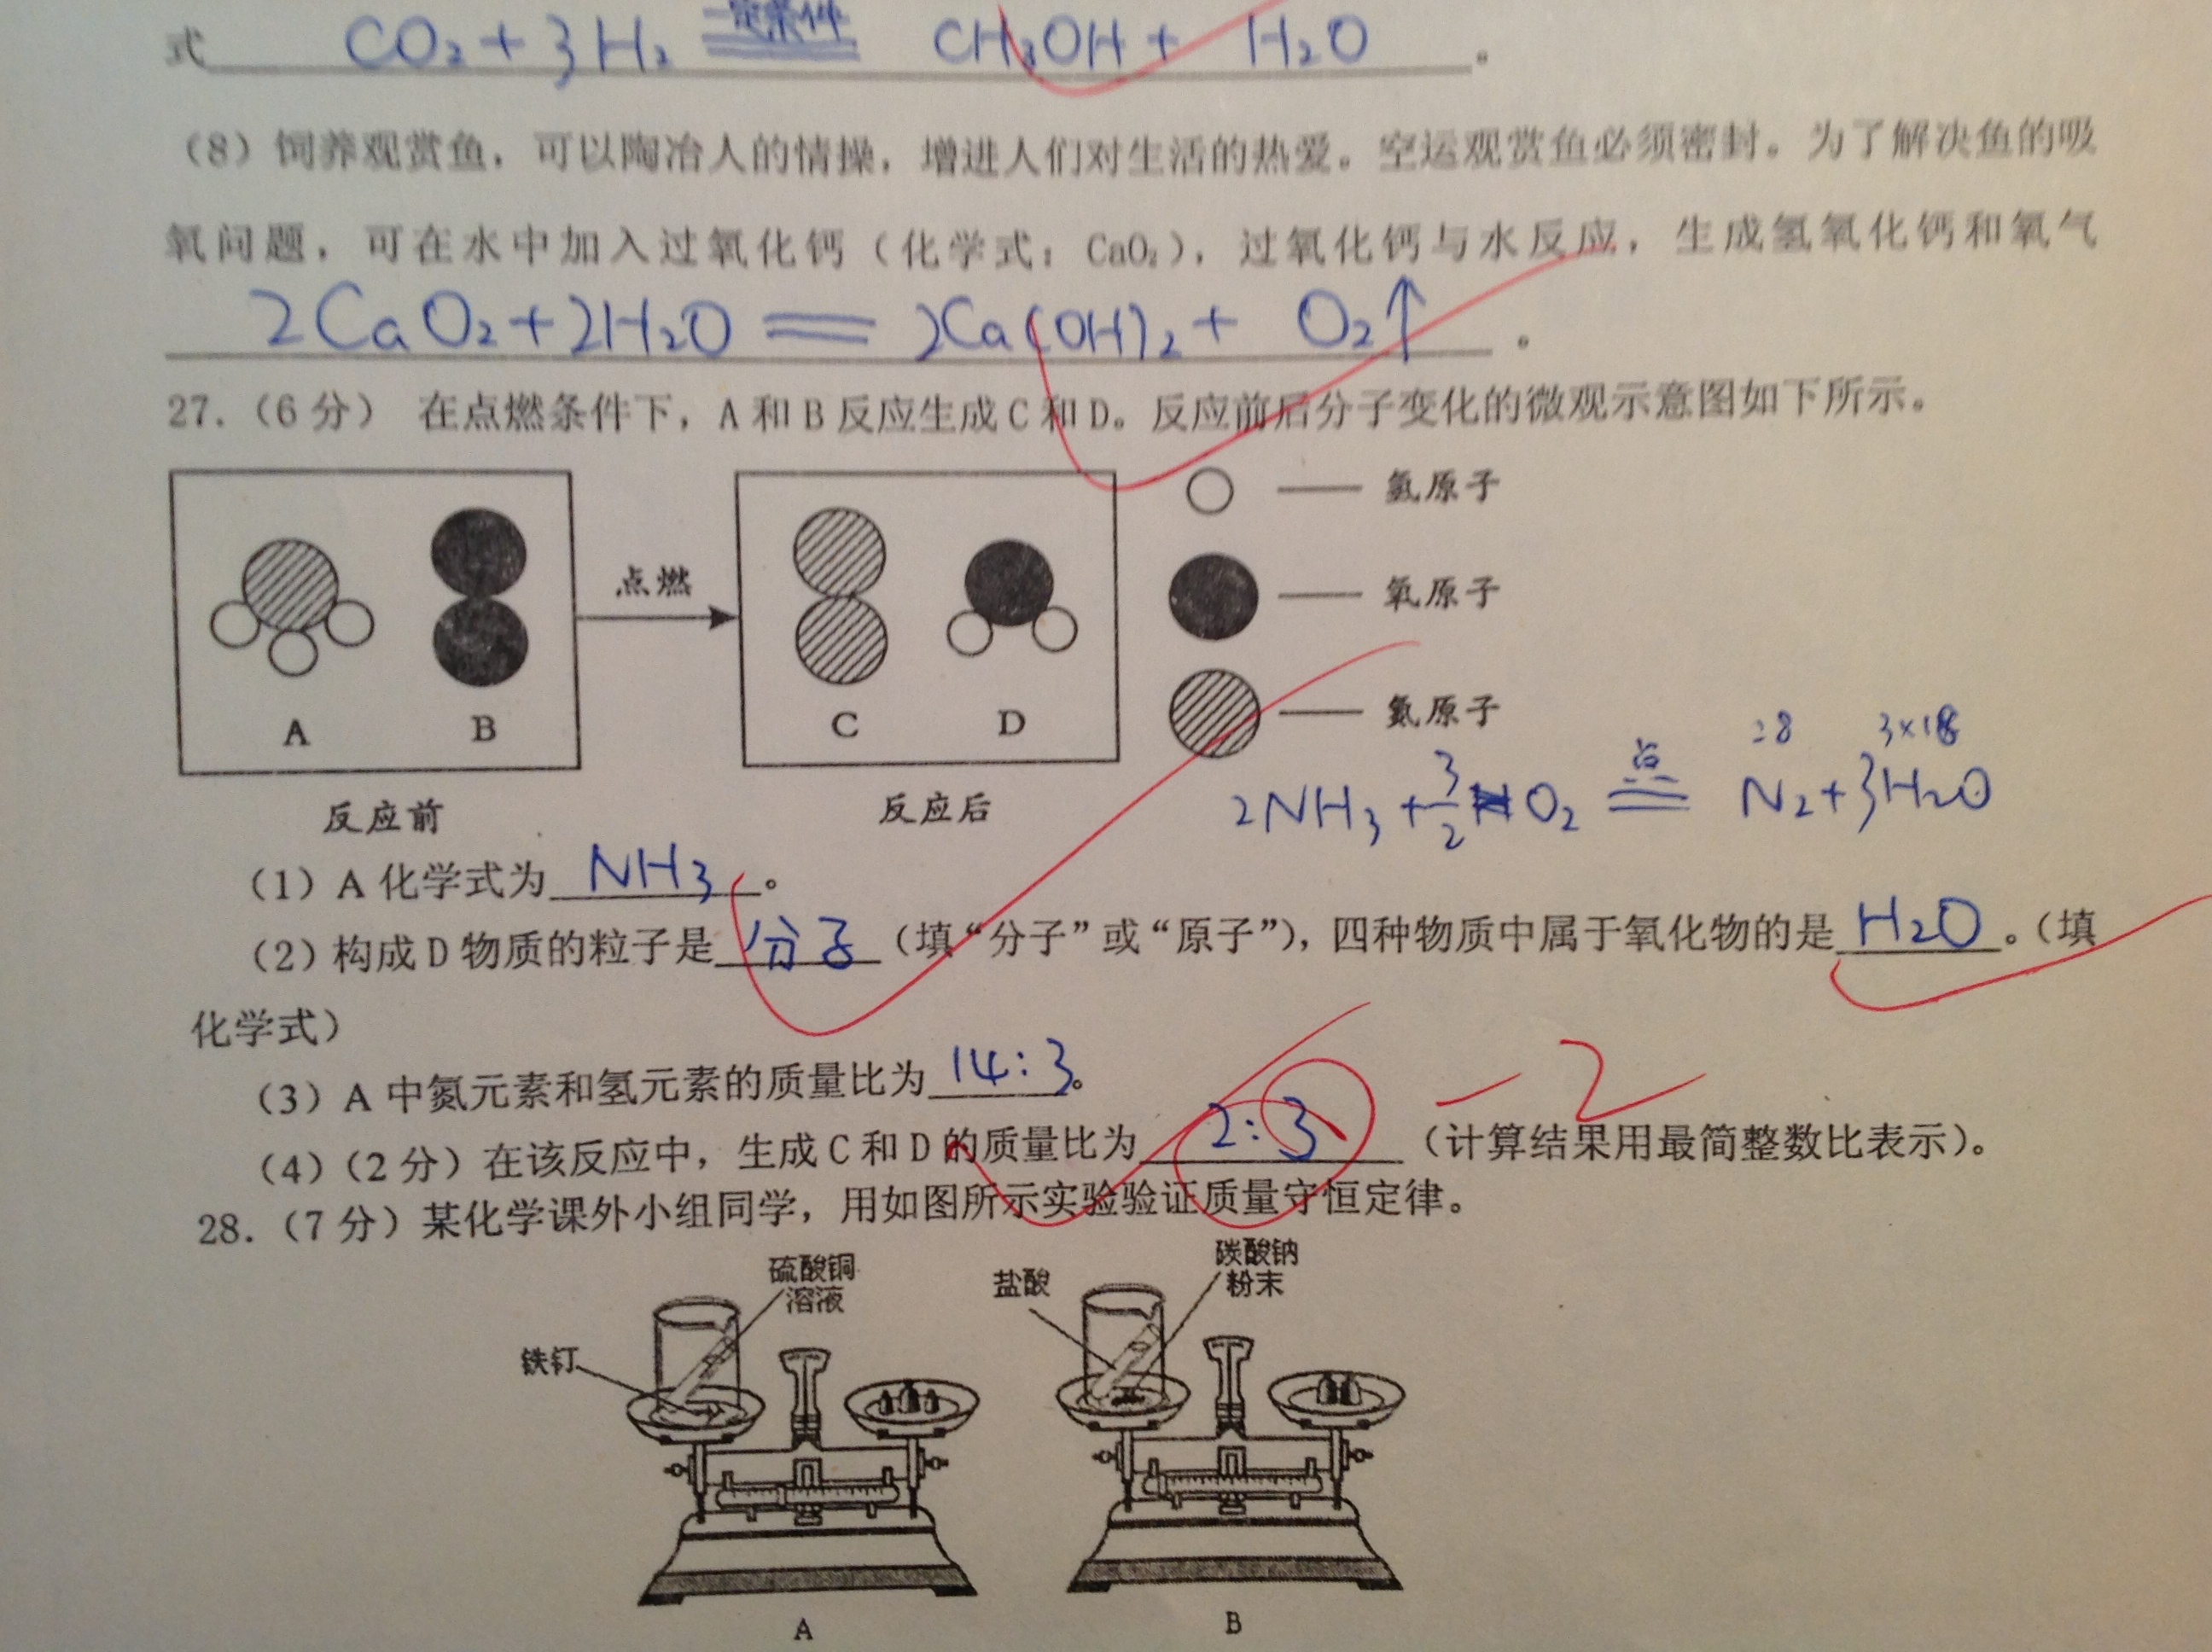 式 CO₂ + 3H₂ 一定条件 CH₃OH + H₂O 。
(8) 饲养观赏鱼，可以陶冶人的情操，增进人们对生活的热爱。空运观赏鱼必须密封。为了解决鱼的吸
氧问题，可在水中加入过氧化钙（化学式：CaO₂），过氧化钙与水反应，生成氢氧化钙和氧气
2CaO₂ + 2H₂O = 2Ca(OH)₂ + O₂↑ 。
27.（6分） 在点燃条件下，A和B反应生成C和D。反应前后分子变化的微观示意图如下所示。
氢原子
点燃
氧原子
氮原子
A B C D
反应前 反应后
28 3×18
点
2NH₃ + 3/2 O₂ = N₂ + 3H₂O
（1）A 化学式为 NH₃ 。
（2）构成D物质的粒子是 分子 （填“分子”或“原子”），四种物质中属于氧化物的是 H₂O 。（填
化学式）
（3）A 中氮元素和氢元素的质量比为 14:3 。
-2
（4）（2分）在该反应中，生成C和D的质量比为 2:3 （计算结果用最简整数比表示）。
28.（7分）某化学课外小组同学，用如图所示实验验证质量守恒定律。
硫酸铜
溶液
铁钉
盐酸
碳酸钠
粉末
A B